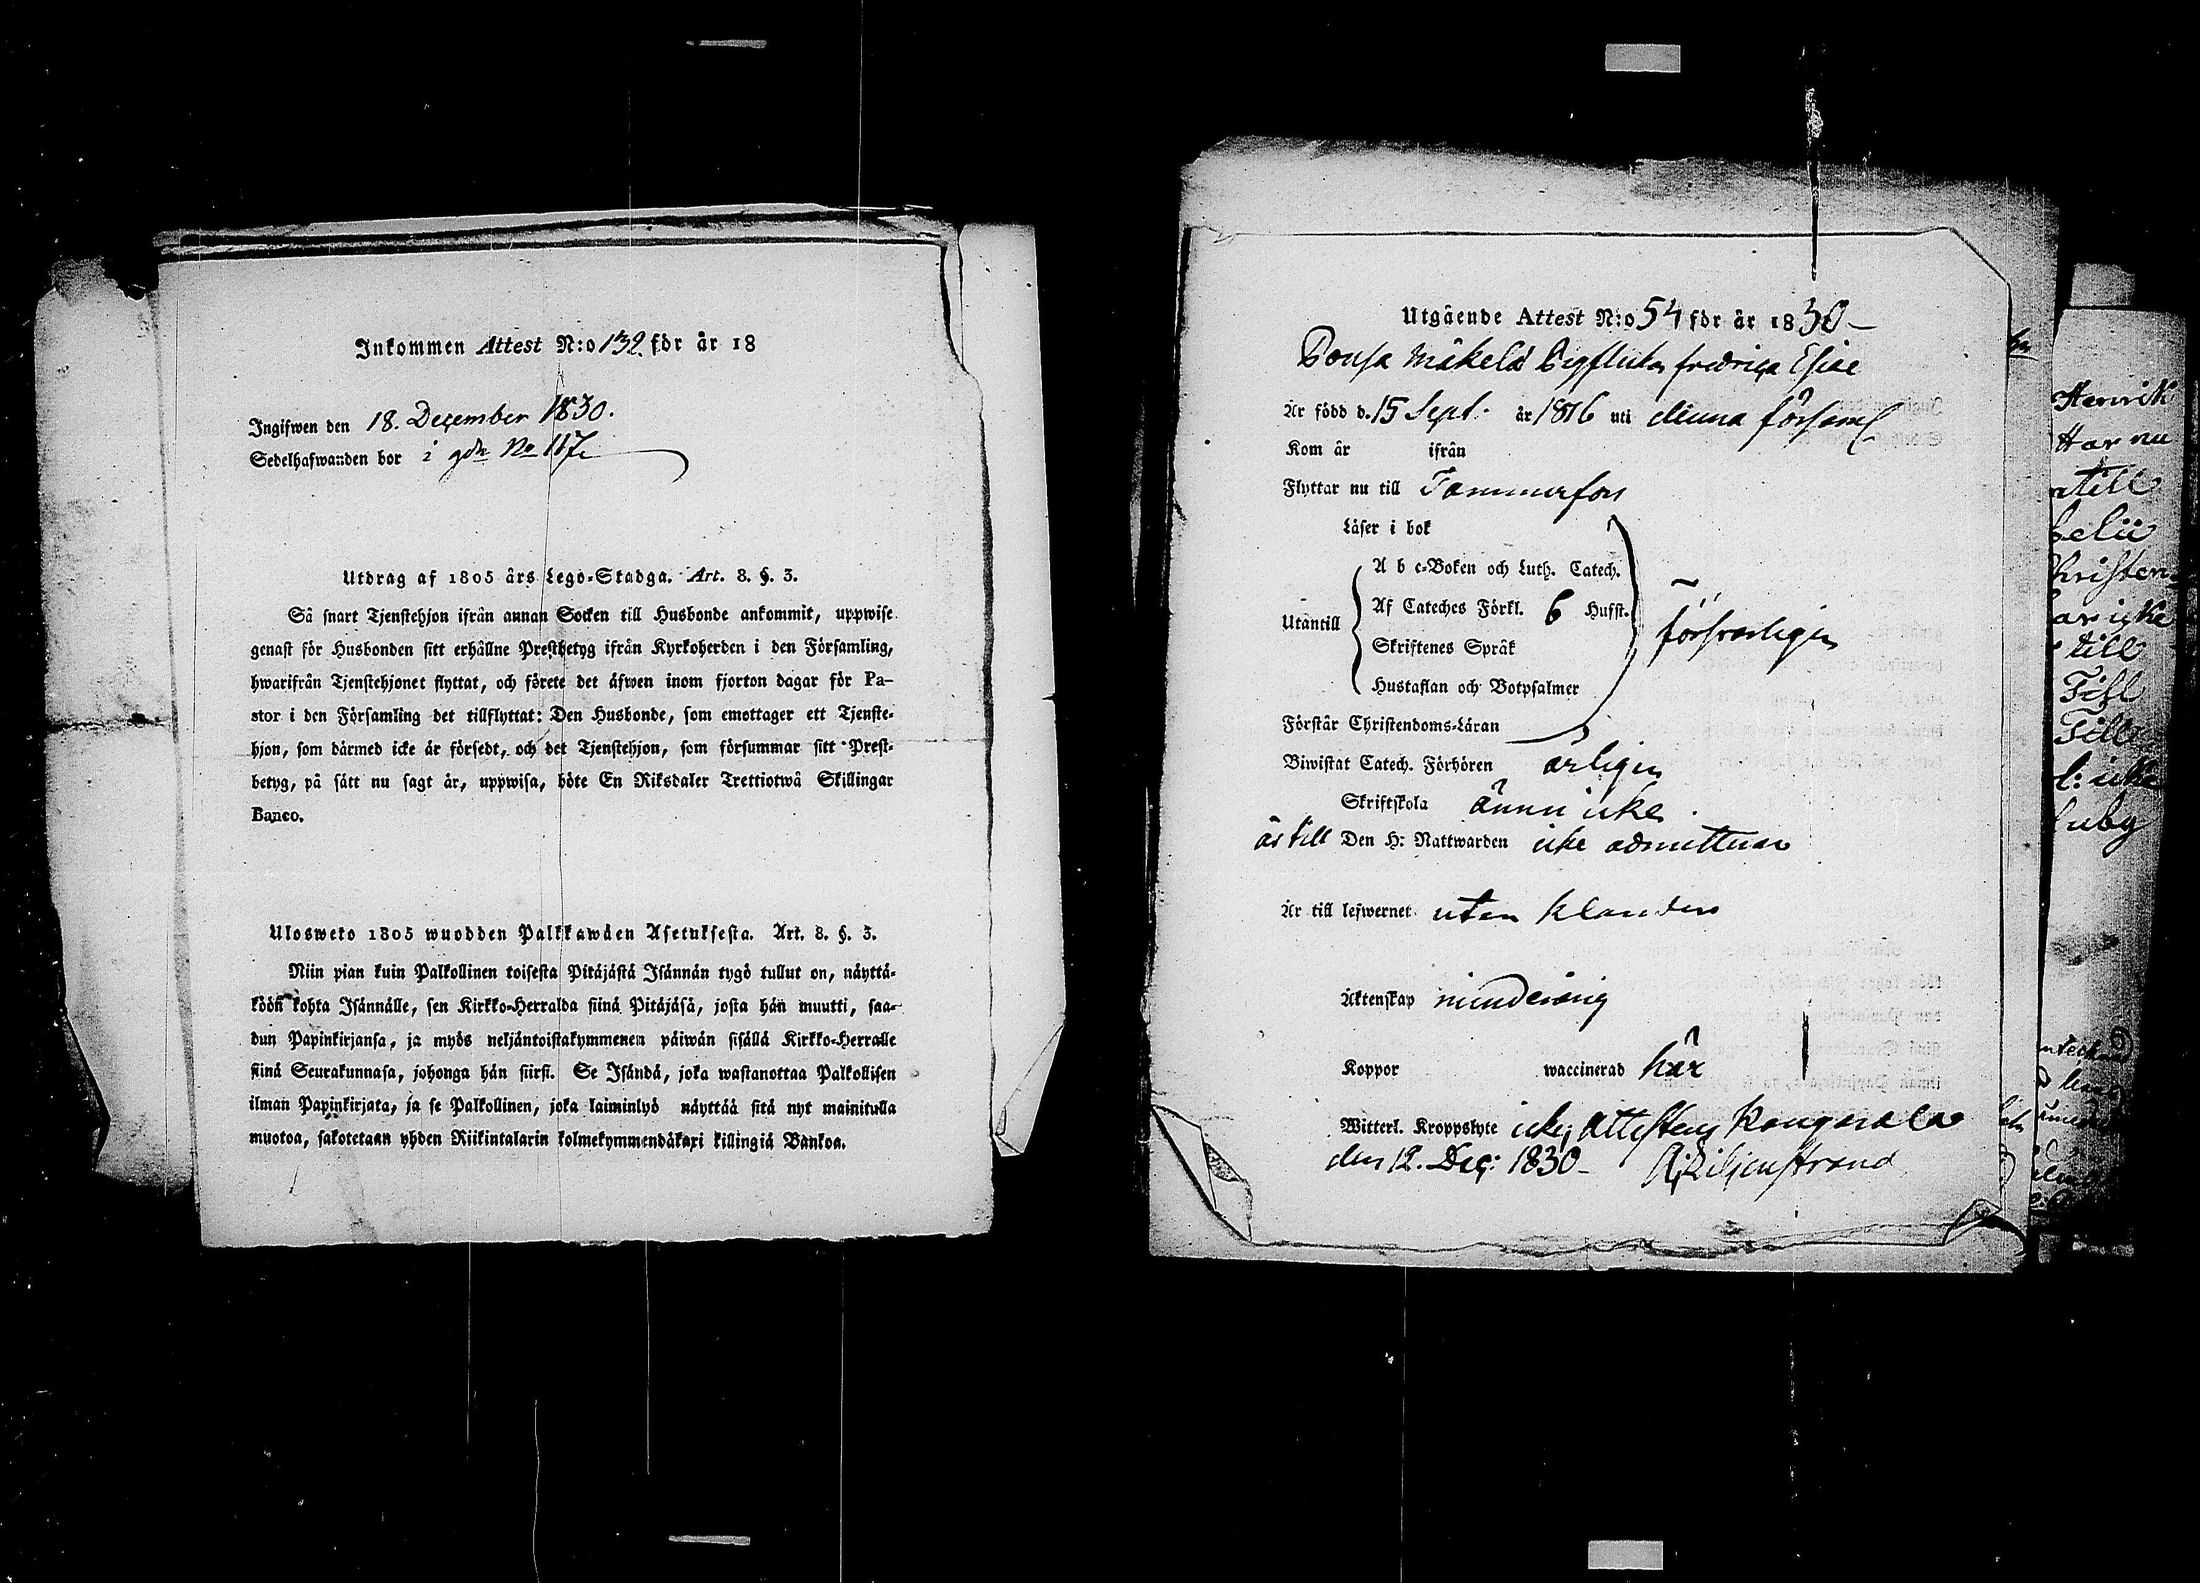 Inkommen Attest N:o 132. för år 18
Ingifwen den 18. December 1830.
Sedelhafwanden bor i gdn No 117.
Utdrag af 1805 års Lego-Stadga. Art. 8. §. 3.
Så snart Tjenstehjon ifrån annan Socken till Husbonde ankommit, uppwise
genast för Husbonden sitt erhållne Prestbetyg ifrån Kyrkoherden i den Församling,
hwarifrån Tjenstehjonet flyttat, och förete det äfwen inom fjorton dagar för Pa-
stor i den Församling det tillflyttat: Den Husbonde, som emottager ett Tjenste-
hjon, som därmed icke är försedt, och det Tjenstehjon, som försummar sitt Prest-
betyg, på sätt nu sagt är, uppwisa, böte En Riksdaler Trettiotwå Skillingar
Banco.
Ulosweto 1805 wuodden Palkkawäen Asetuksesta. Art. 8. §. 3.
Niin pian kuin Palkollinen toisesta Pitäjästä Isännän tygö tullut on, näyttä-
köön kohta Isännälle, sen Kirkko-Herralda siinä Pitäjäsä, josta hän muutti, saa-
dun Papinkirjansa, ja myös neljäntoistakymmenen päiwän sisällä Kirkko-Herralle
siinä Seurakunnasa, johonga hän siirsi. Se Isändä, joka wastanottaa Palkollisen
ilman Papinkirjata, ja se Palkollinen, joka laiminlyö näyttää sitä nyt mainitulla
muotoa, sakotetaan yhden Riikintalarin kolmekymmendäkaxi killingiä Bankoa.
Utgående Attest N:o 54 för år 1830
Mäkelä Bygflickan fredrica
Är född d. 15 Sept. år 1816 uti denna församl.
Kom år ifrån
Flyttar nu till Tammerfors
Läser i bok
A b c-Boken och Luth. Catech.
Utantill Af Cateches Förkl. 6 Hufst. försvarligen
Skriftenes Språk
Hustaflan och Botpsalmer
Förstår Christendoms-Läran
Biwistat Catech. Förhören årligen
Skriftskola ännu icke
är till Den H: Nattwarden icke admitterad
Är till lefwernet utan klander
Äktenskap minderårig
Koppor waccinerad har
Witterl. Kroppslyte icke, attesterar Kangasala
den 12. Dec: 1830 Liljenstrand
Henrik
Har nu
till
icke
till
Till